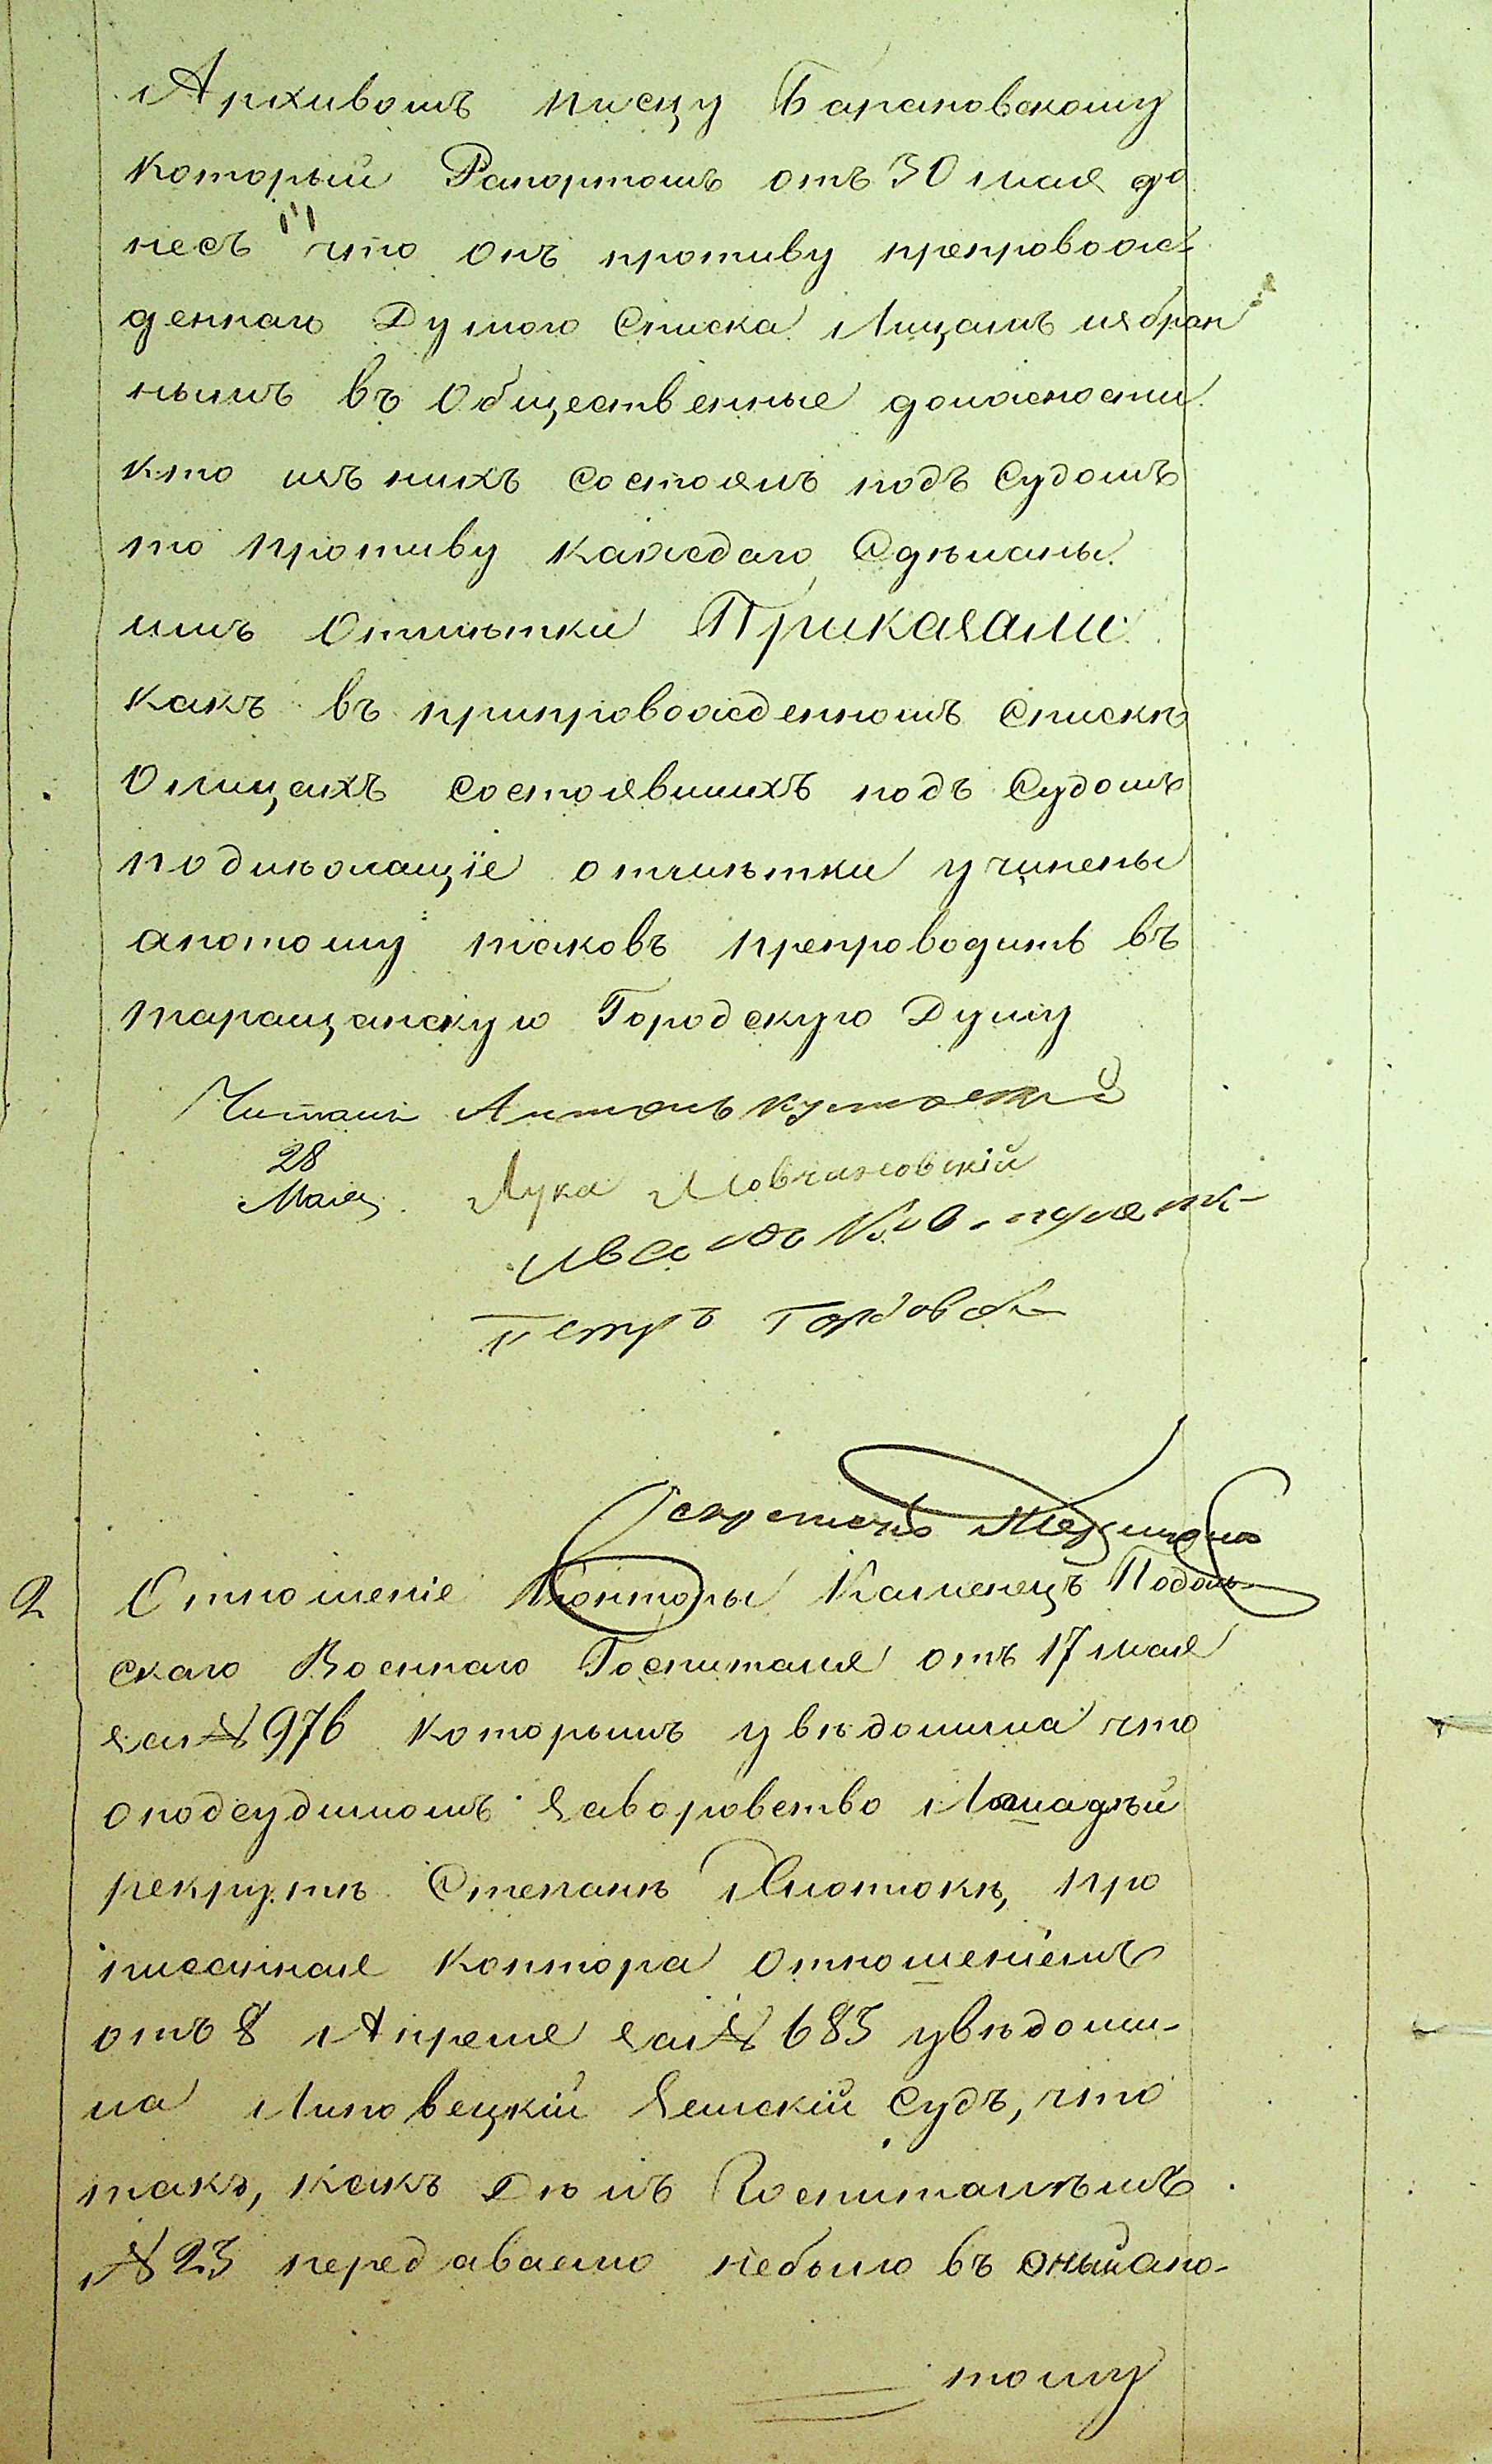 Архивомъ писцу Барановскому
который Рапортомъ отъ 30 мая до
несъ что онъ противу препровож-
деннаго Думою Списка Лицамъ избран
нымъ въ Общественные должности
кто изъ нихъ состоялъ подъ Судомъ
то противу каждаго Сдѣланы
имъ Отмѣтки Приказали
какъ въ припровожденномъ Спискѣ
О лицахъ состоявшихъ подъ Судомъ
подлѣжащіе отмѣтки учинены
апотому таковъ препроводить въ
таращанскую Городскую Думу
Читалъ Антонъ
28
Мая Лука
Иванъ
Петръ
Секретарь
2 Отношеніе Конторы Каменецъ Подоль
скаго Военнаго Госпиталя отъ 17 мая
за № 976 которымъ увѣдомила что
оподсудимомъ заворовство Лошадѣй
рекрутѣ Степанѣ про
писанная контора отношеніемъ
отъ 8 Апреля за № 683 увѣдоми-
ла Липовецкій Земскій Судъ, что
такъ, какъ Дѣлъ Госпиталѣмъ
№ 23 передаваемо небыло въ оный апо-
тому